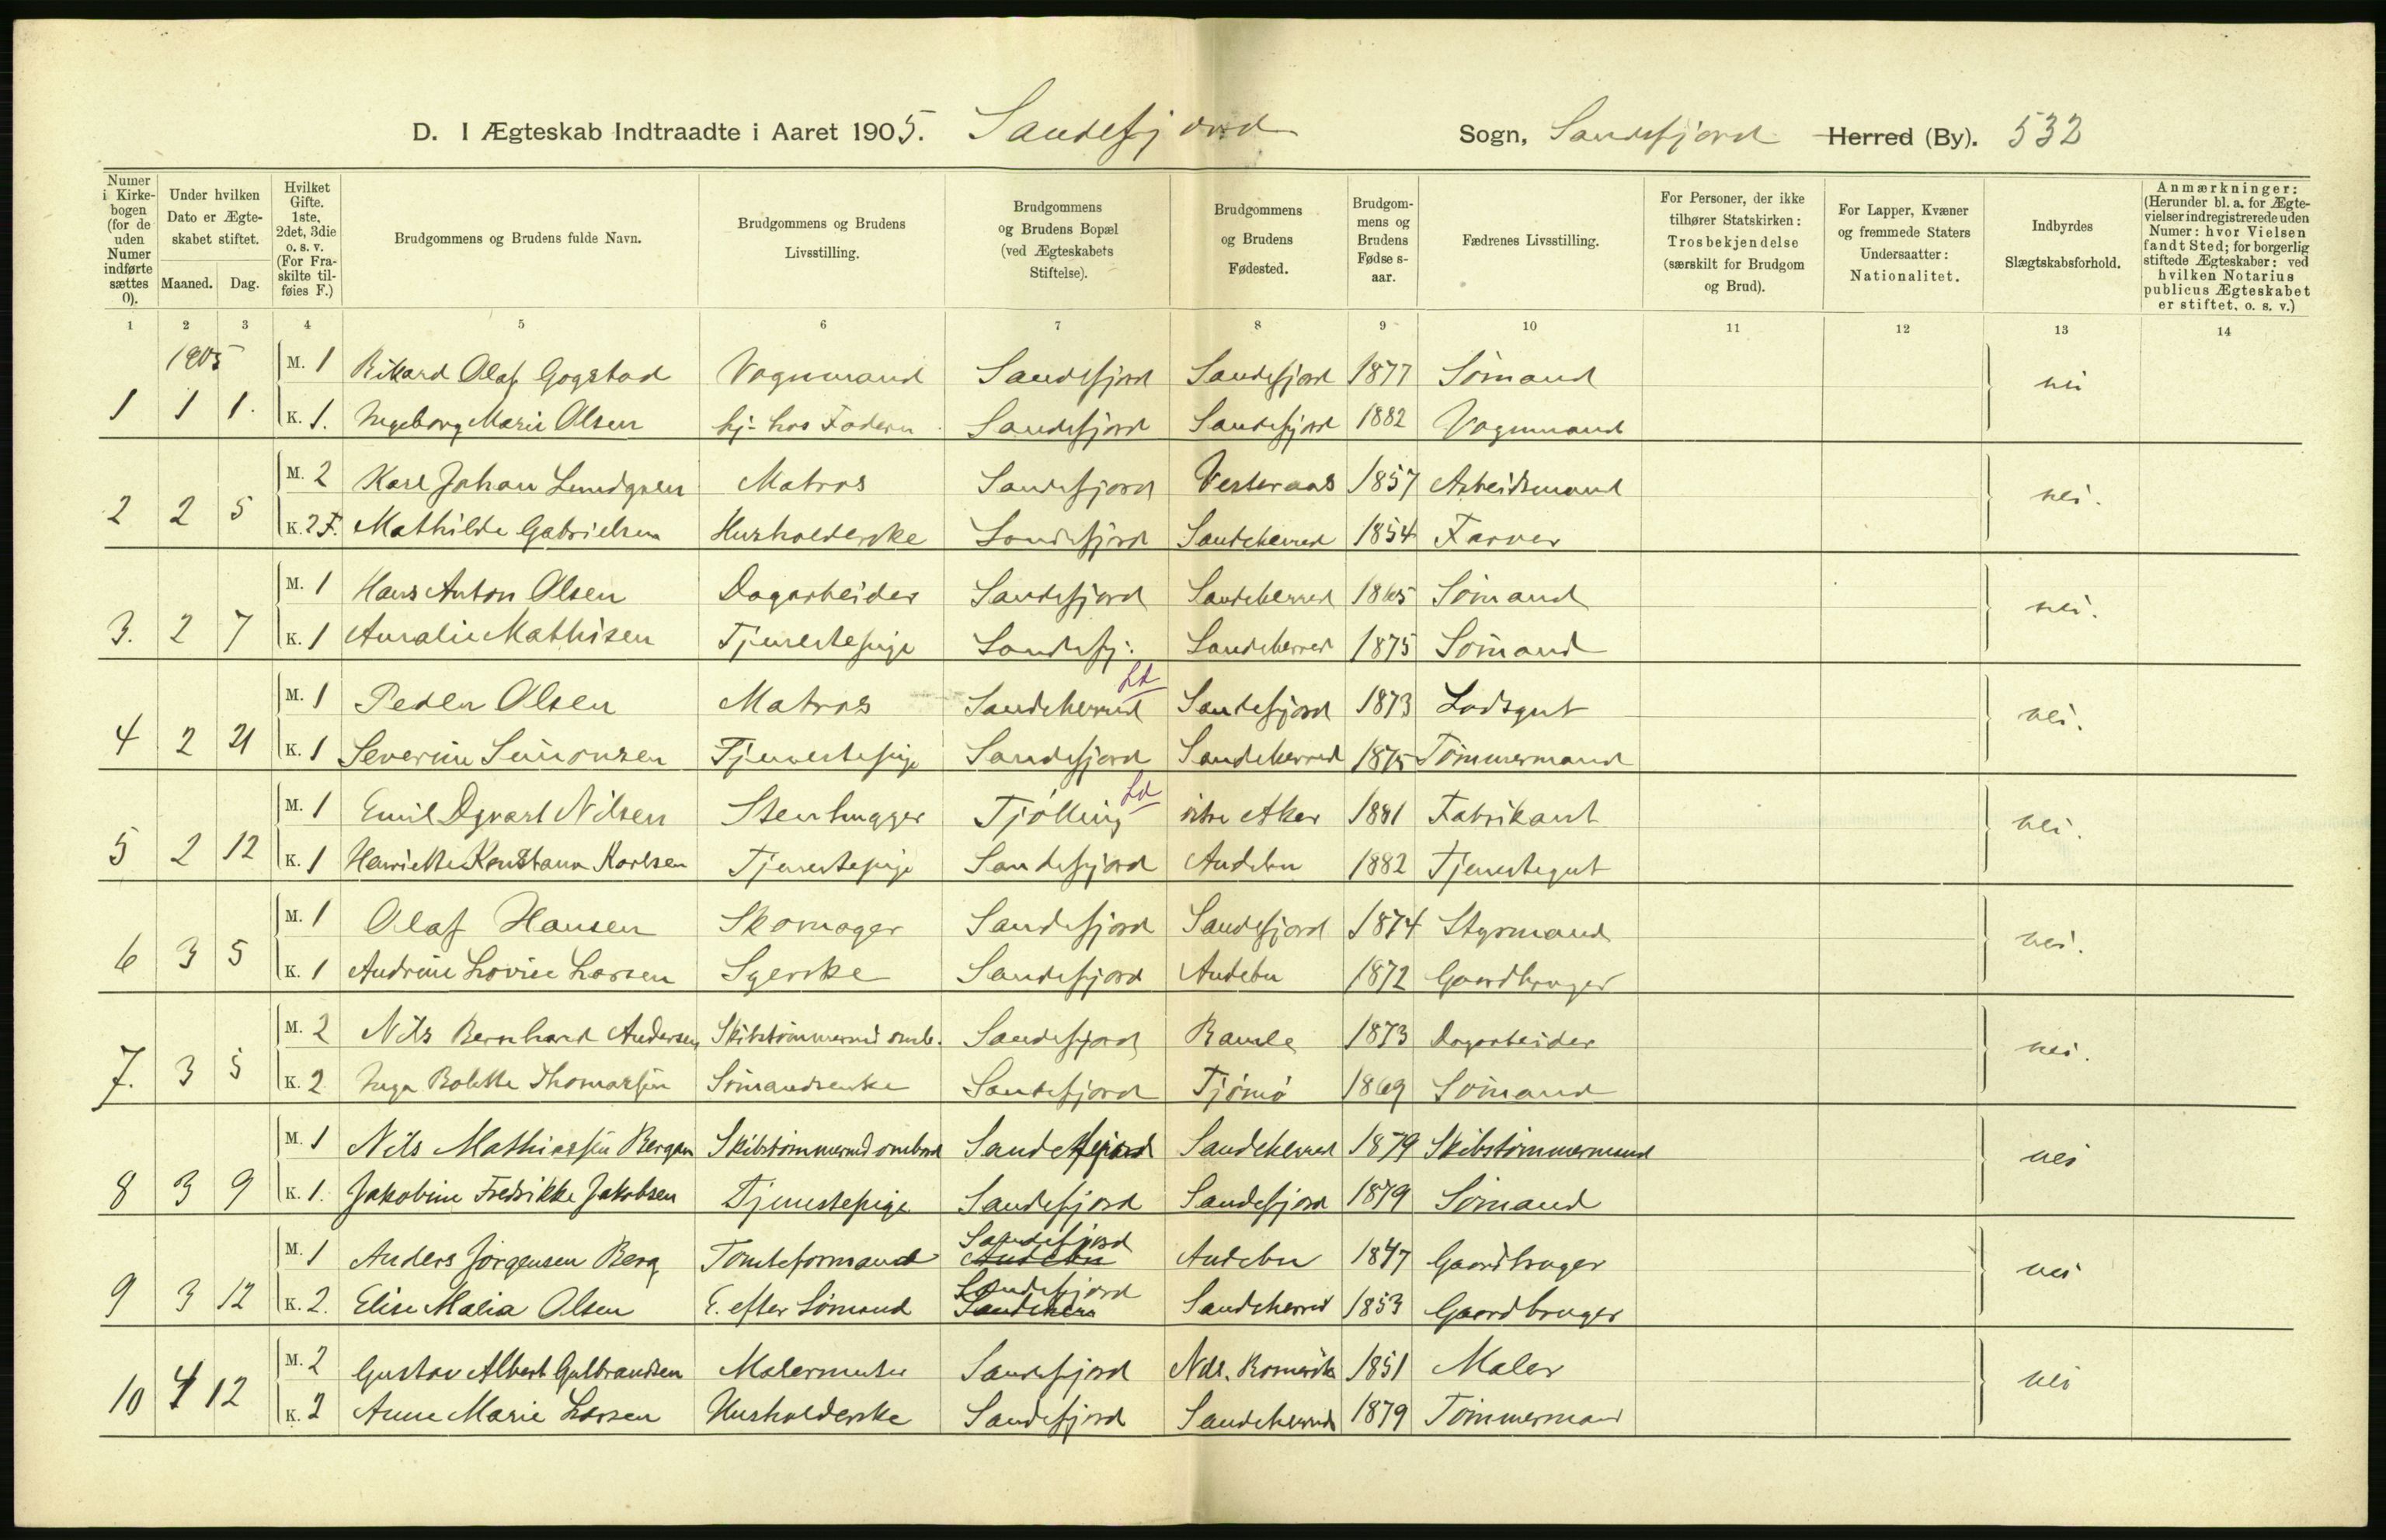 D. I Ægteskab Indtraadte i Aaret 1905. Sandefjord Sogn, Sandefjord Herred (By). 532
Numer i Kirkebogen (for de uden Numer indførte sættes 0).
Under hvilken Dato er Ægteskabet stiftet.
Maaned. Dag.
Hvilket Gifte. 1ste, 2det, 3die o. s. v. (For Fraskilte tilføies F.)
Brudgommens og Brudens fulde Navn.
Brudgommens og Brudens Livsstilling.
Brudgommens og Brudens Bopæl (ved Ægteskabets Stiftelse).
Brudgommens og Brudens Fødested.
Brudgommens og Brudens Fødselsaar.
Fædrenes Livsstilling.
For Personer, der ikke tilhører Statskirken: Trosbekjendelse (særskilt for Brudgom og Brud).
For Lapper, Kvæner og fremmede Staters Undersaatter: Nationalitet.
Indbyrdes Slægtskabsforhold.
Anmærkninger: (Herunder bl. a. for Ægtevielser indregistrerede uden Numer: hvor Vielsen fandt Sted; for borgerlig stiftede Ægteskaber: ved hvilken Notarius publicus Ægteskabet er stiftet, o. s. v.)
1 2 3 4 5 6 7 8 9 10 11 12 13 14
1905 M. 1 Rikard Olaf Gogstad Vognmand Sandefjord Sandefjord 1877 Sømand nei
1 1 1. K. 1. Ingeborg Marie Olsen hj. hos Faderen Sandefjord Sandefjord 1882 Vognmand
M. 2 Karl Johan Lundgren Matros Sandefjord Vesteraas 1857 Arbeidsmand nei.
2 2 5 K. 2 F. Mathilde Gabrielsen Husholderske Sandefjord Sandeherred 1854 Farver
M. 1 Hans Anton Olsen Dagarbeider Sandefjord Sandeherred 1865 Sømand nei.
3. 2 7 K. 1 Amalie Mathisen Tjenestepige Sandefj: Sandeherred 1875 Sømand
M. 1 Peder Olsen Matros Sandeherred Ld Sandefjord 1873 Lodsgut nei.
4 2 21 K. 1 Severine Simonsen Tjenestepige Sandefjord Sandeherred 1875 Tømmermand
M. 1 Emil Dgvart Nilsen Stenhugger Tjølling Ld østre Aker 1881 Fabrikant nei.
5 2 12 K. 1 Henriette Konstanse Karlsen Tjenestepige Sandefjord Andebu 1882 Tjenestegut
M. 1 Olaf Hansen Skomager Sandefjord Sandefjord 1874 Styrmand nei.
6 3 5 K. 1 Andrine Lovise Larsen Syerske Sandefjord Andebu 1872 Gaardbruger
M. 2 Nils Bernhard Andersen Skibstømmermd omb. Sandefjord Bamle 1873 Dagarbeider nei.
7. 3 5 K. 2 Inga Bolette Thomassen Sømandsenke Sandefjord Tjømø 1869 Sømand
M. 1 Nils Mathiassen Bergan Skibstømmermd ombord Sandefjord Sandeherred 1879 Skibstømmermand nei
8 3 9 K. 1. Jakobine Fredrikke Jakobsen Tjenestepige Sandefjord Sandefjord 1879 Sømand
M. 1 Anders Jørgensen Berg Tomteformand Sandefjord Andebu Andebu 1847 Gaardbruger nei
9 3 12 K. 2. Elise Malia Olsen E. efter Sømand Sandefjord Sandeherr Sandeherred 1853 Gaardbruger
M. 2 Gustav Albert Gulbrandsen Malermester Sandefjord Ndr. Romerike 1851 Maler nei
10 4 12 K. 2 Anne Marie Larsen Husholderske Sandefjord Sandeherred 1879 Tømmermand